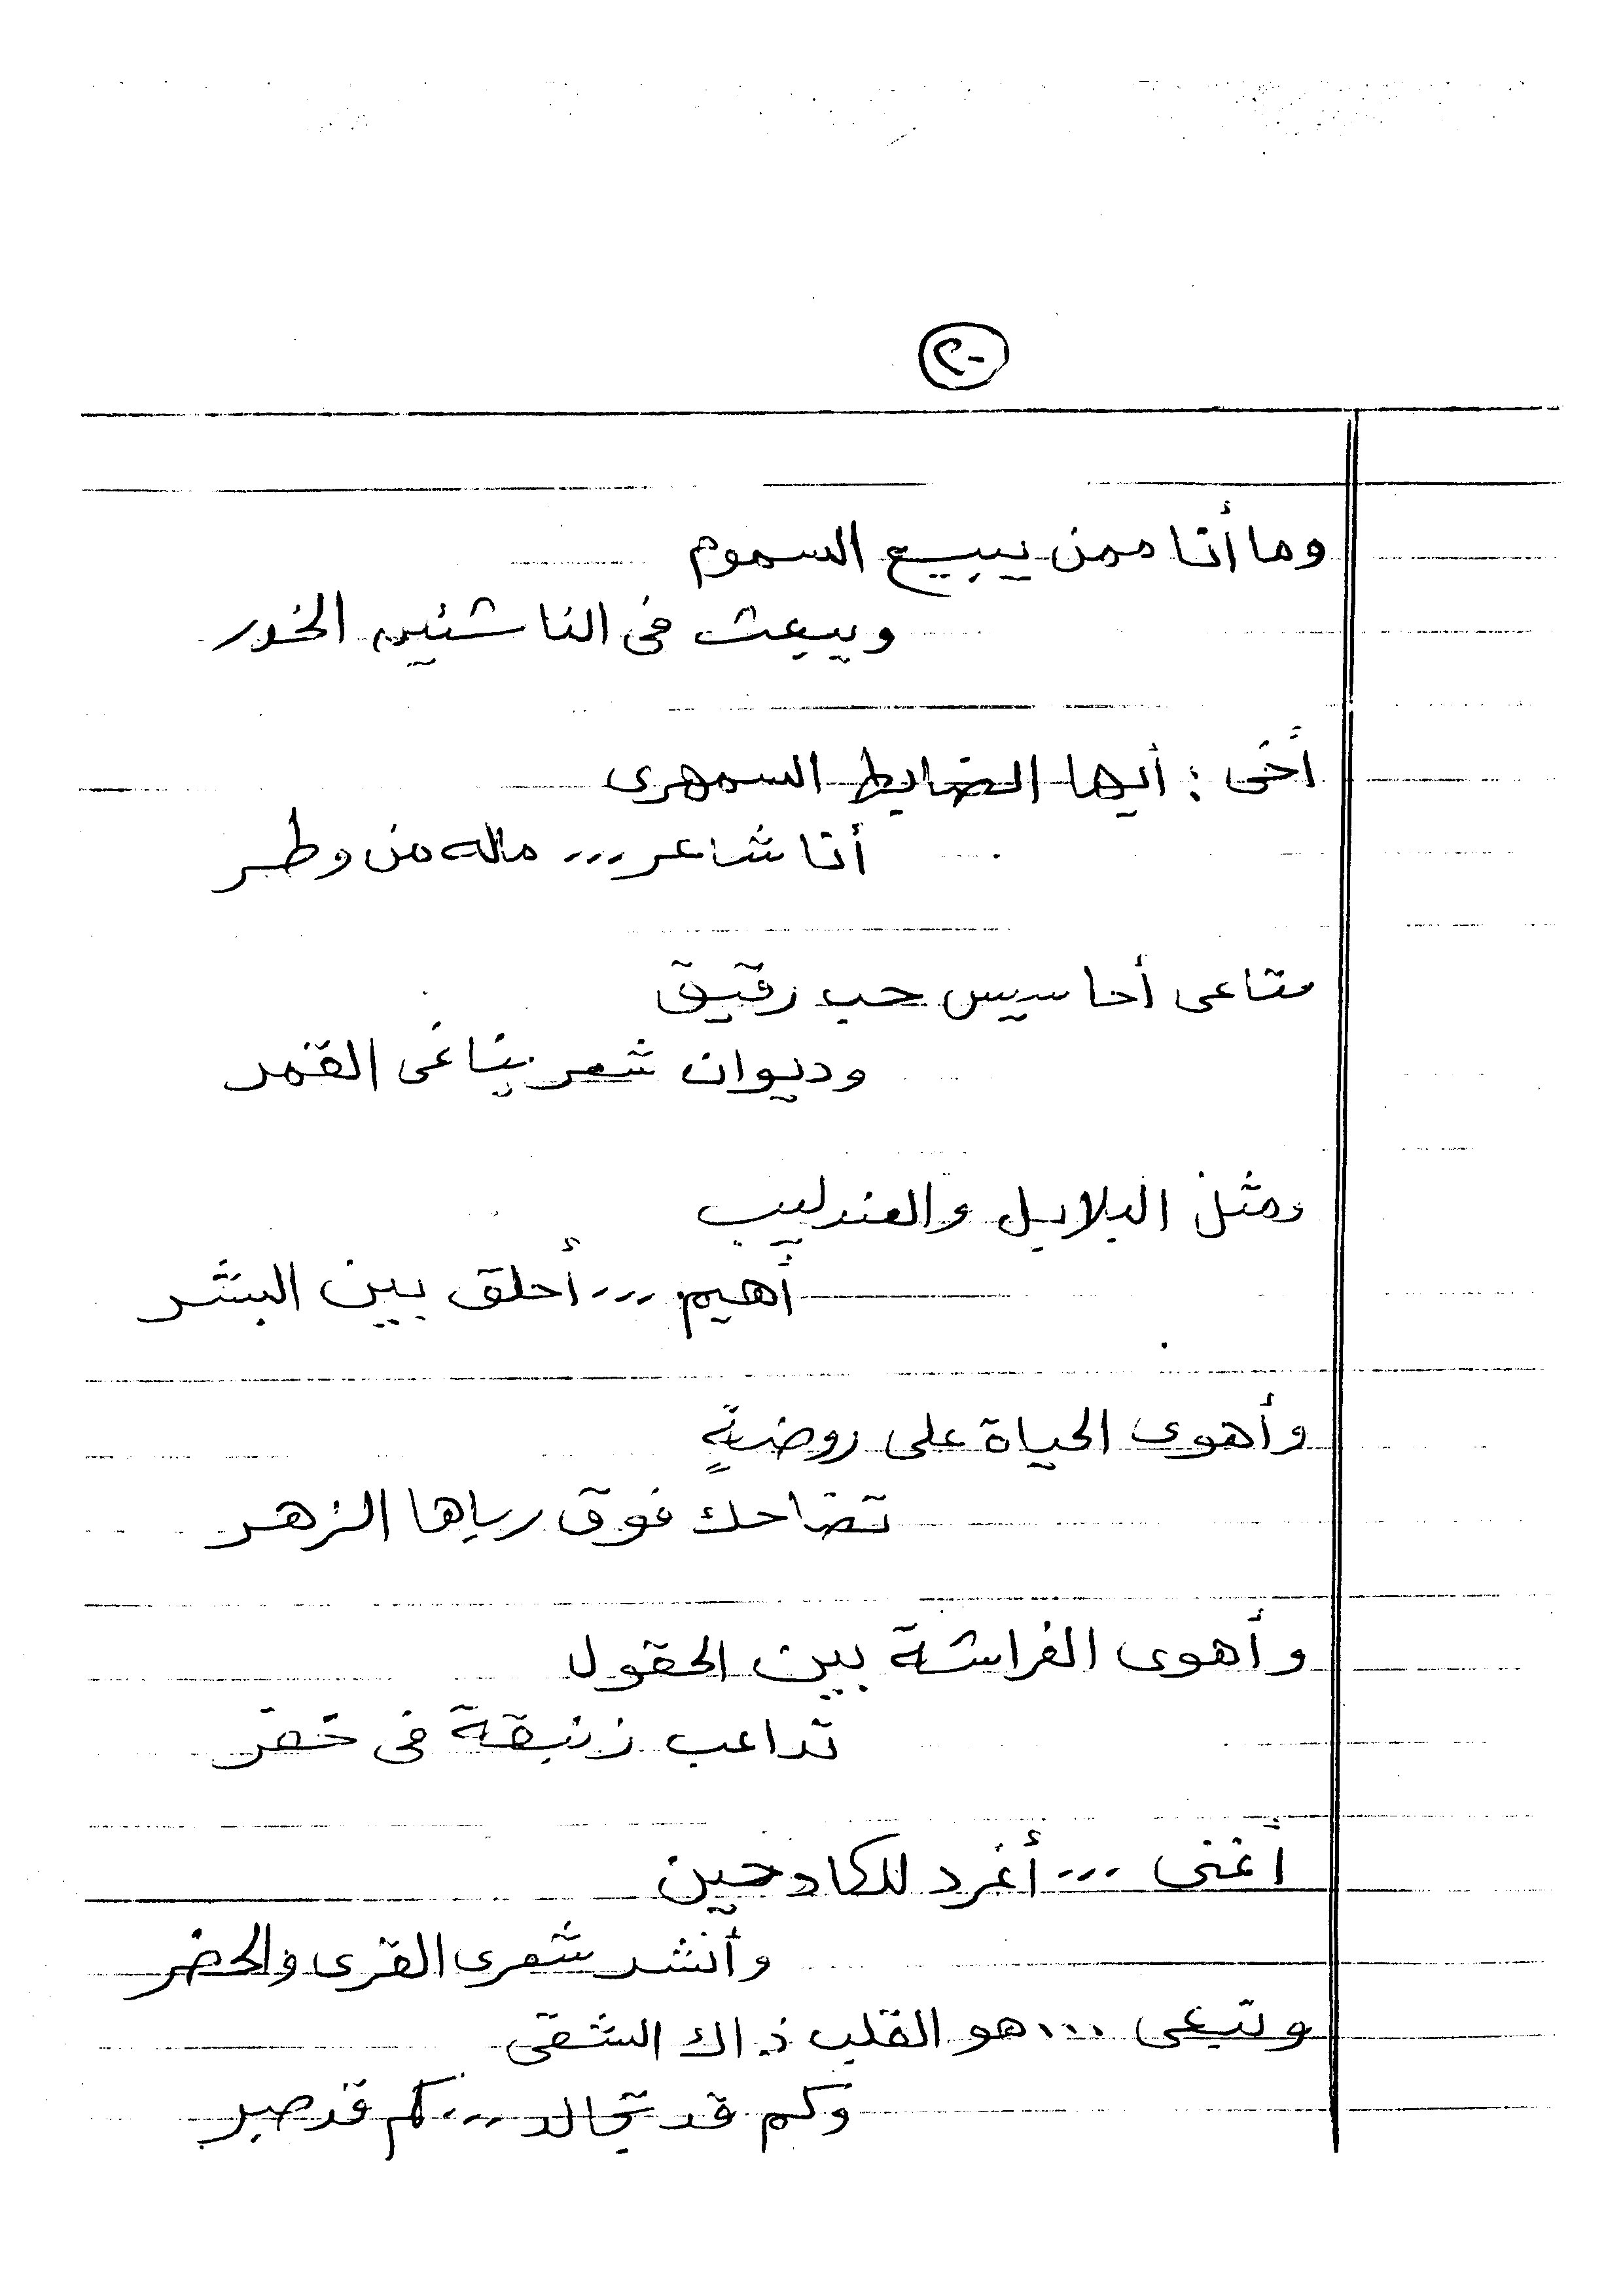 ٢٠
وما أنا ممن يبيع السموم
ويبعث فى الناشئين الخدر
أخى : أيها الضابط السمهرى
أنا شاعر ... ماله من وطر
متاعى أحاسيس حب رقيق
وديوان شعر يناغى القمر
ومثل البلابل والعندليب
أهيم ... أحلق بين البشر
وأهوى الحياة على روضةٍ
تضاحك فوق رباها الزهر
وأهوى الفراشة بين الحقول
تداعب زنبقة فى خفر
أغنى ... أغرد للكادحين
وأنشد شعرى القرى والحضر
... هو القلب ذاك الشقى
وكم قد تجالد ... كم قد صبر